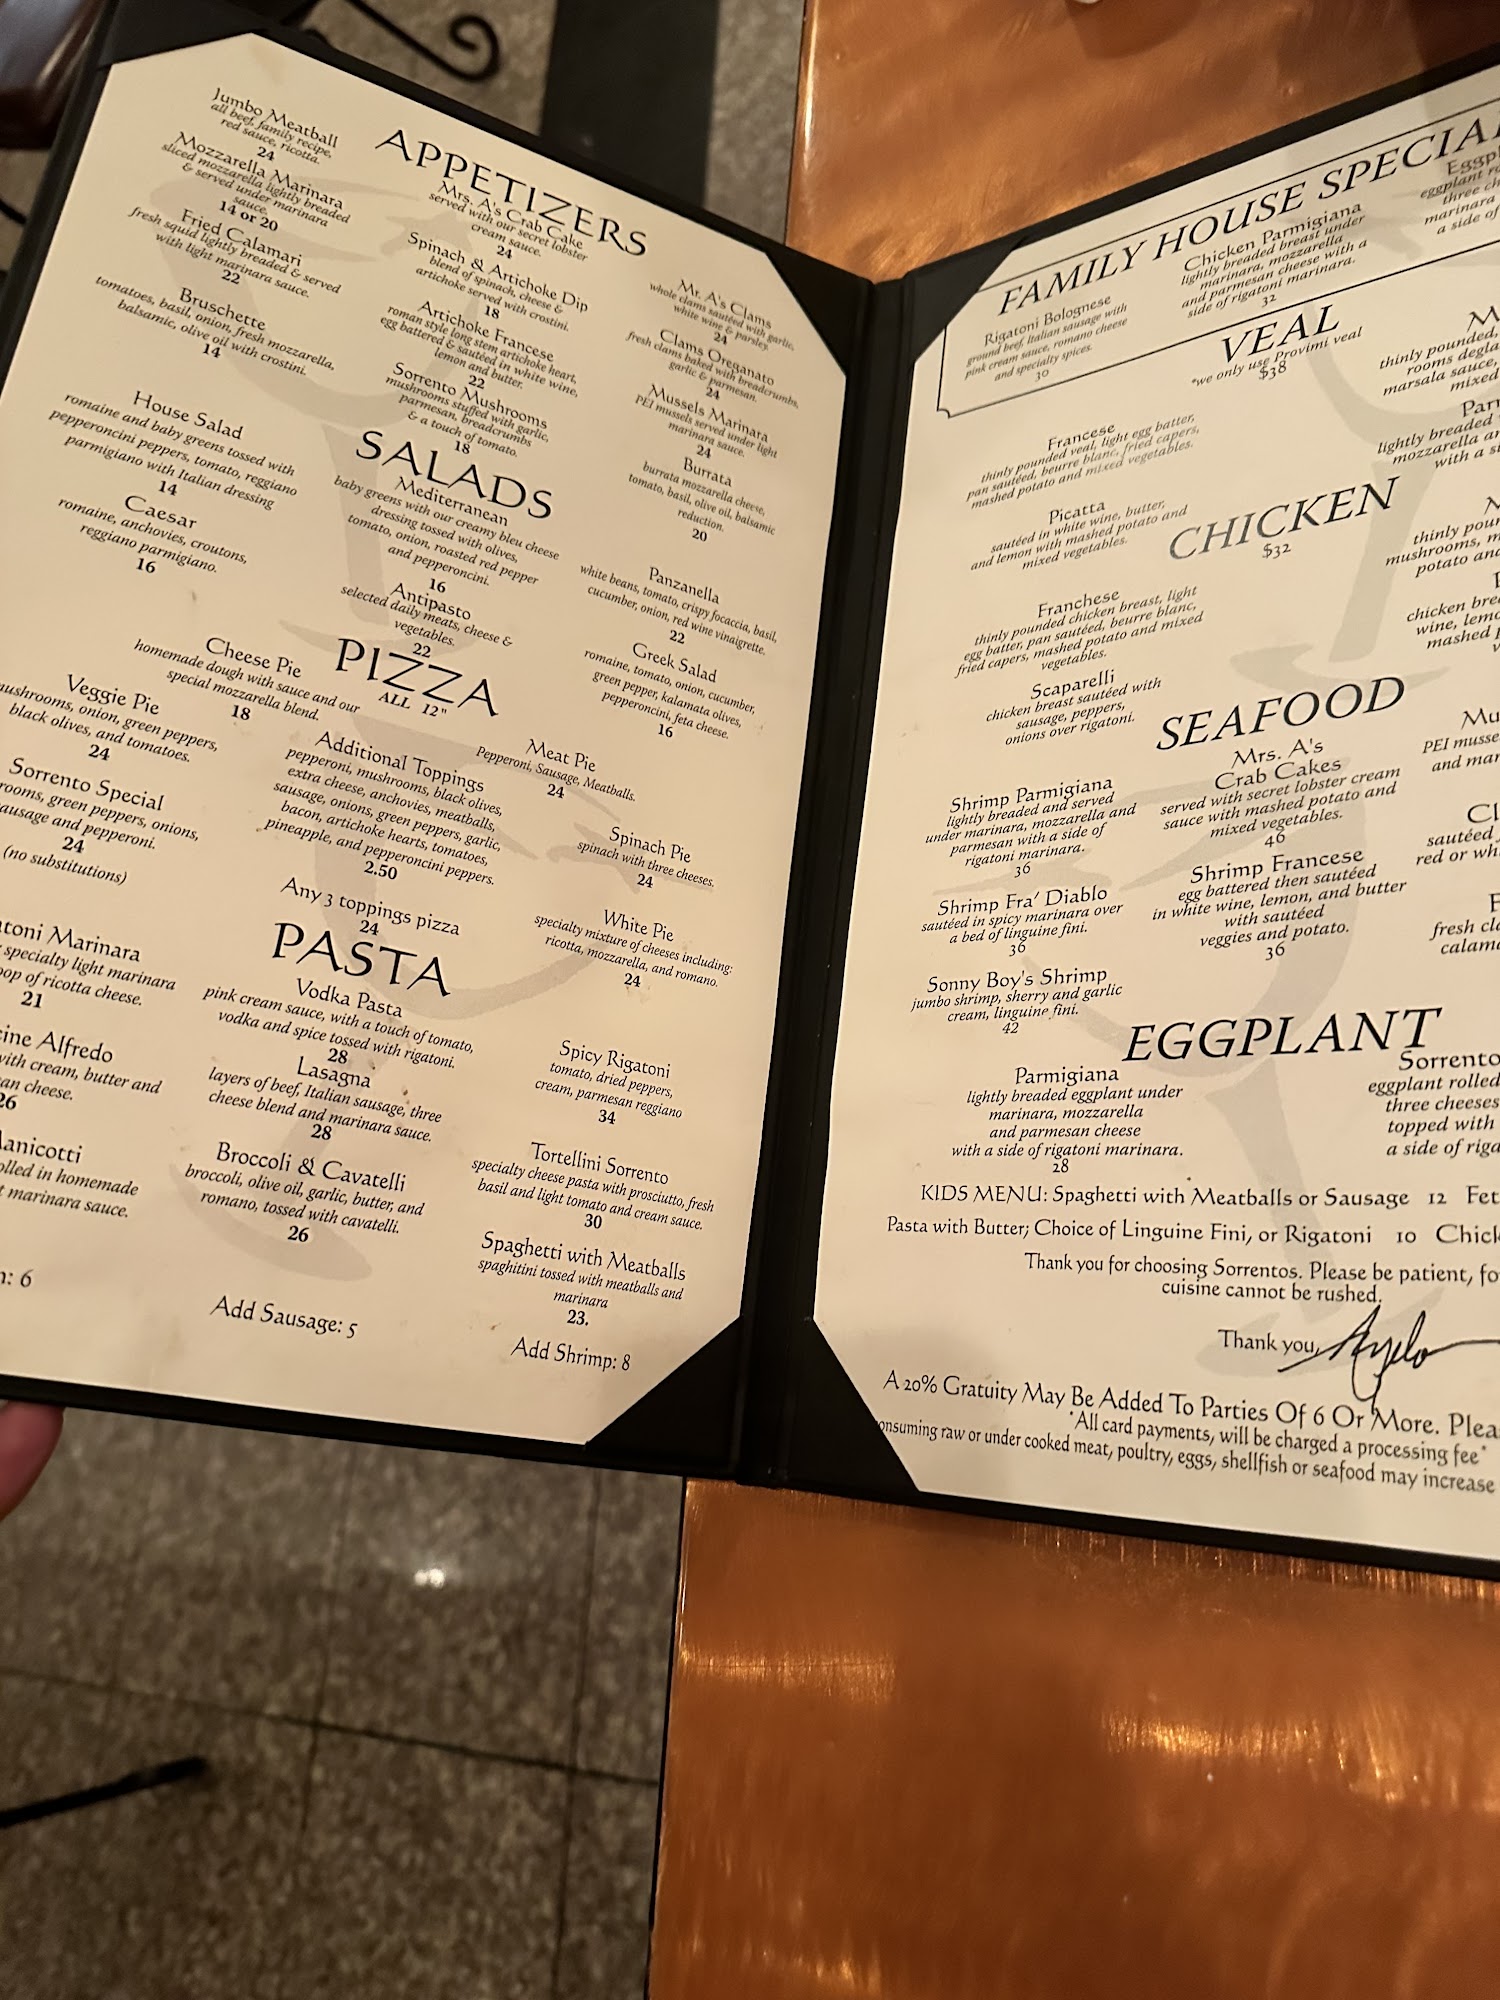 APPETIZERS
Jumbo Meatball
all beef, family recipe,
red sauce, ricotta.
24
Mozzarella Marinara
sliced mozzarella lightly breaded
& served under marinara
sauce.
14 or 20
Fried Calamari
fresh squid lightly breaded & served
with light marinara sauce.
22
Bruschette
tomatoes, basil, onion, fresh mozzarella,
balsamic, olive oil with crostini.
14
Mrs. A's Crab Cake
served with our secret lobster
cream sauce.
24
Spinach & Artichoke Dip
blend of spinach, cheese &
artichoke served with crostini.
18
Artichoke Francese
roman style long stem artichoke heart,
egg battered & sautéed in white wine,
lemon and butter.
22
Sorrento Mushrooms
mushrooms stuffed with garlic,
parmesan, breadcrumbs
& a touch of tomato.
18
Mr. A's Clams
whole clams sautéed with garlic,
white wine & parsley.
24
Clams Oreganato
fresh clams baked with breadcrumbs,
garlic & parmesan.
24
Mussels Marinara
PEI mussels served under light
marinara sauce.
24
Burrata
burrata mozzarella cheese,
tomato, basil, olive oil, balsamic
reduction.
20
SALADS
House Salad
romaine and baby greens tossed with
pepperoncini peppers, tomato, reggiano
parmigiano with Italian dressing
14
Caesar
romaine, anchovies, croutons,
reggiano parmigiano.
16
Mediterranean
baby greens with our creamy bleu cheese
dressing tossed with olives,
tomato, onion, roasted red pepper
and pepperoncini.
16
Antipasto
selected daily meats, cheese &
vegetables.
22
Panzanella
white beans, tomato, crispy focaccia, basil,
cucumber, onion, red wine vinaigrette.
22
Greek Salad
romaine, tomato, onion, cucumber,
green pepper, kalamata olives,
pepperoncini, feta cheese.
16
PIZZA
ALL 12"
Cheese Pie
homemade dough with sauce and our
special mozzarella blend.
18
Veggie Pie
mushrooms, onion, green peppers,
black olives, and tomatoes.
24
Sorrento Special
rooms, green peppers, onions,
ausage and pepperoni.
24
(no substitutions)
Additional Toppings
pepperoni, mushrooms, black olives,
extra cheese, anchovies, meatballs,
sausage, onions, green peppers, garlic,
bacon, artichoke hearts, tomatoes,
pineapple, and pepperoncini peppers.
2.50
Any 3 toppings pizza
24
Meat Pie
Pepperoni, Sausage, Meatballs.
24
Spinach Pie
spinach with three cheeses.
24
White Pie
specialty mixture of cheeses including:
ricotta, mozzarella, and romano.
24
PASTA
atoni Marinara
specialty light marinara
oop of ricotta cheese.
21
cine Alfredo
with cream, butter and
an cheese.
26
Manicotti
olled in homemade
t marinara sauce.
n: 6
Vodka Pasta
pink cream sauce, with a touch of tomato,
vodka and spice tossed with rigatoni.
28
Lasagna
layers of beef, Italian sausage, three
cheese blend and marinara sauce.
28
Broccoli & Cavatelli
broccoli, olive oil, garlic, butter, and
romano, tossed with cavatelli.
26
Add Sausage: 5
Spicy Rigatoni
tomato, dried peppers,
cream, parmesan reggiano
34
Tortellini Sorrento
specialty cheese pasta with prosciutto, fresh
basil and light tomato and cream sauce.
30
Spaghetti with Meatballs
spaghitini tossed with meatballs and
marinara
23.
Add Shrimp: 8
FAMILY HOUSE SPECIAL
Rigatoni Bolognese
ground beef, italian sausage with
pink cream sauce, romano cheese
and specialty spices.
30
Chicken Parmigiana
lightly breaded breast under
marinara, mozzarella
and parmesan cheese with a
side of rigatoni marinara.
32
Eggpl
eggplant ro
three ch
marinara
a side of
VEAL
*we only use Provimi veal
$38
Francese
thinly pounded veal, light egg batter,
pan sautéed, beurre blanc, fried capers,
mashed potato and mixed vegetables.
Picatta
sautéed in white wine, butter,
and lemon with mashed potato and
mixed vegetables.
M
thinly pounded,
rooms degla
marsala sauce,
mixed
Par
lightly breaded
mozzarella a
with a s
CHICKEN
$32
Franchese
thinly pounded chicken breast, light
egg batter, pan sautéed, beurre blanc,
fried capers, mashed potato and mixed
vegetables.
Scaparelli
chicken breast sautéed with
sausage, peppers,
onions over rigatoni.
thinly pour
mushrooms, m
potato and
chicken bre
wine, lemo
mashed p
v
SEAFOOD
Shrimp Parmigiana
lightly breaded and served
under marinara, mozzarella and
parmesan with a side of
rigatoni marinara.
36
Shrimp Fra' Diablo
sautéed in spicy marinara over
a bed of linguine fini.
36
Sonny Boy's Shrimp
jumbo shrimp, sherry and garlic
cream, linguine fini.
42
Mrs. A's
Crab Cakes
served with secret lobster cream
sauce with mashed potato and
mixed vegetables.
46
Shrimp Francese
egg battered then sautéed
in white wine, lemon, and butter
with sautéed
veggies and potato.
36
Mu
PEI musse
and mar
Cl
sautéed
red or wh
fresh cla
calama
EGGPLANT
Parmigiana
lightly breaded eggplant under
marinara, mozzarella
and parmesan cheese
with a side of rigatoni marinara.
28
Sorrento
eggplant rolled
three cheeses
topped with
a side of riga
KIDS MENU: Spaghetti with Meatballs or Sausage 12 Fet
Pasta with Butter; Choice of Linguine Fini, or Rigatoni 10 Chick
Thank you for choosing Sorrentos. Please be patient, fo
cuisine cannot be rushed.
Thank you, Angelo
A 20% Gratuity May Be Added To Parties Of 6 Or More. Plea
*All card payments, will be charged a processing fee*
onsuming raw or under cooked meat, poultry, eggs, shellfish or seafood may increase